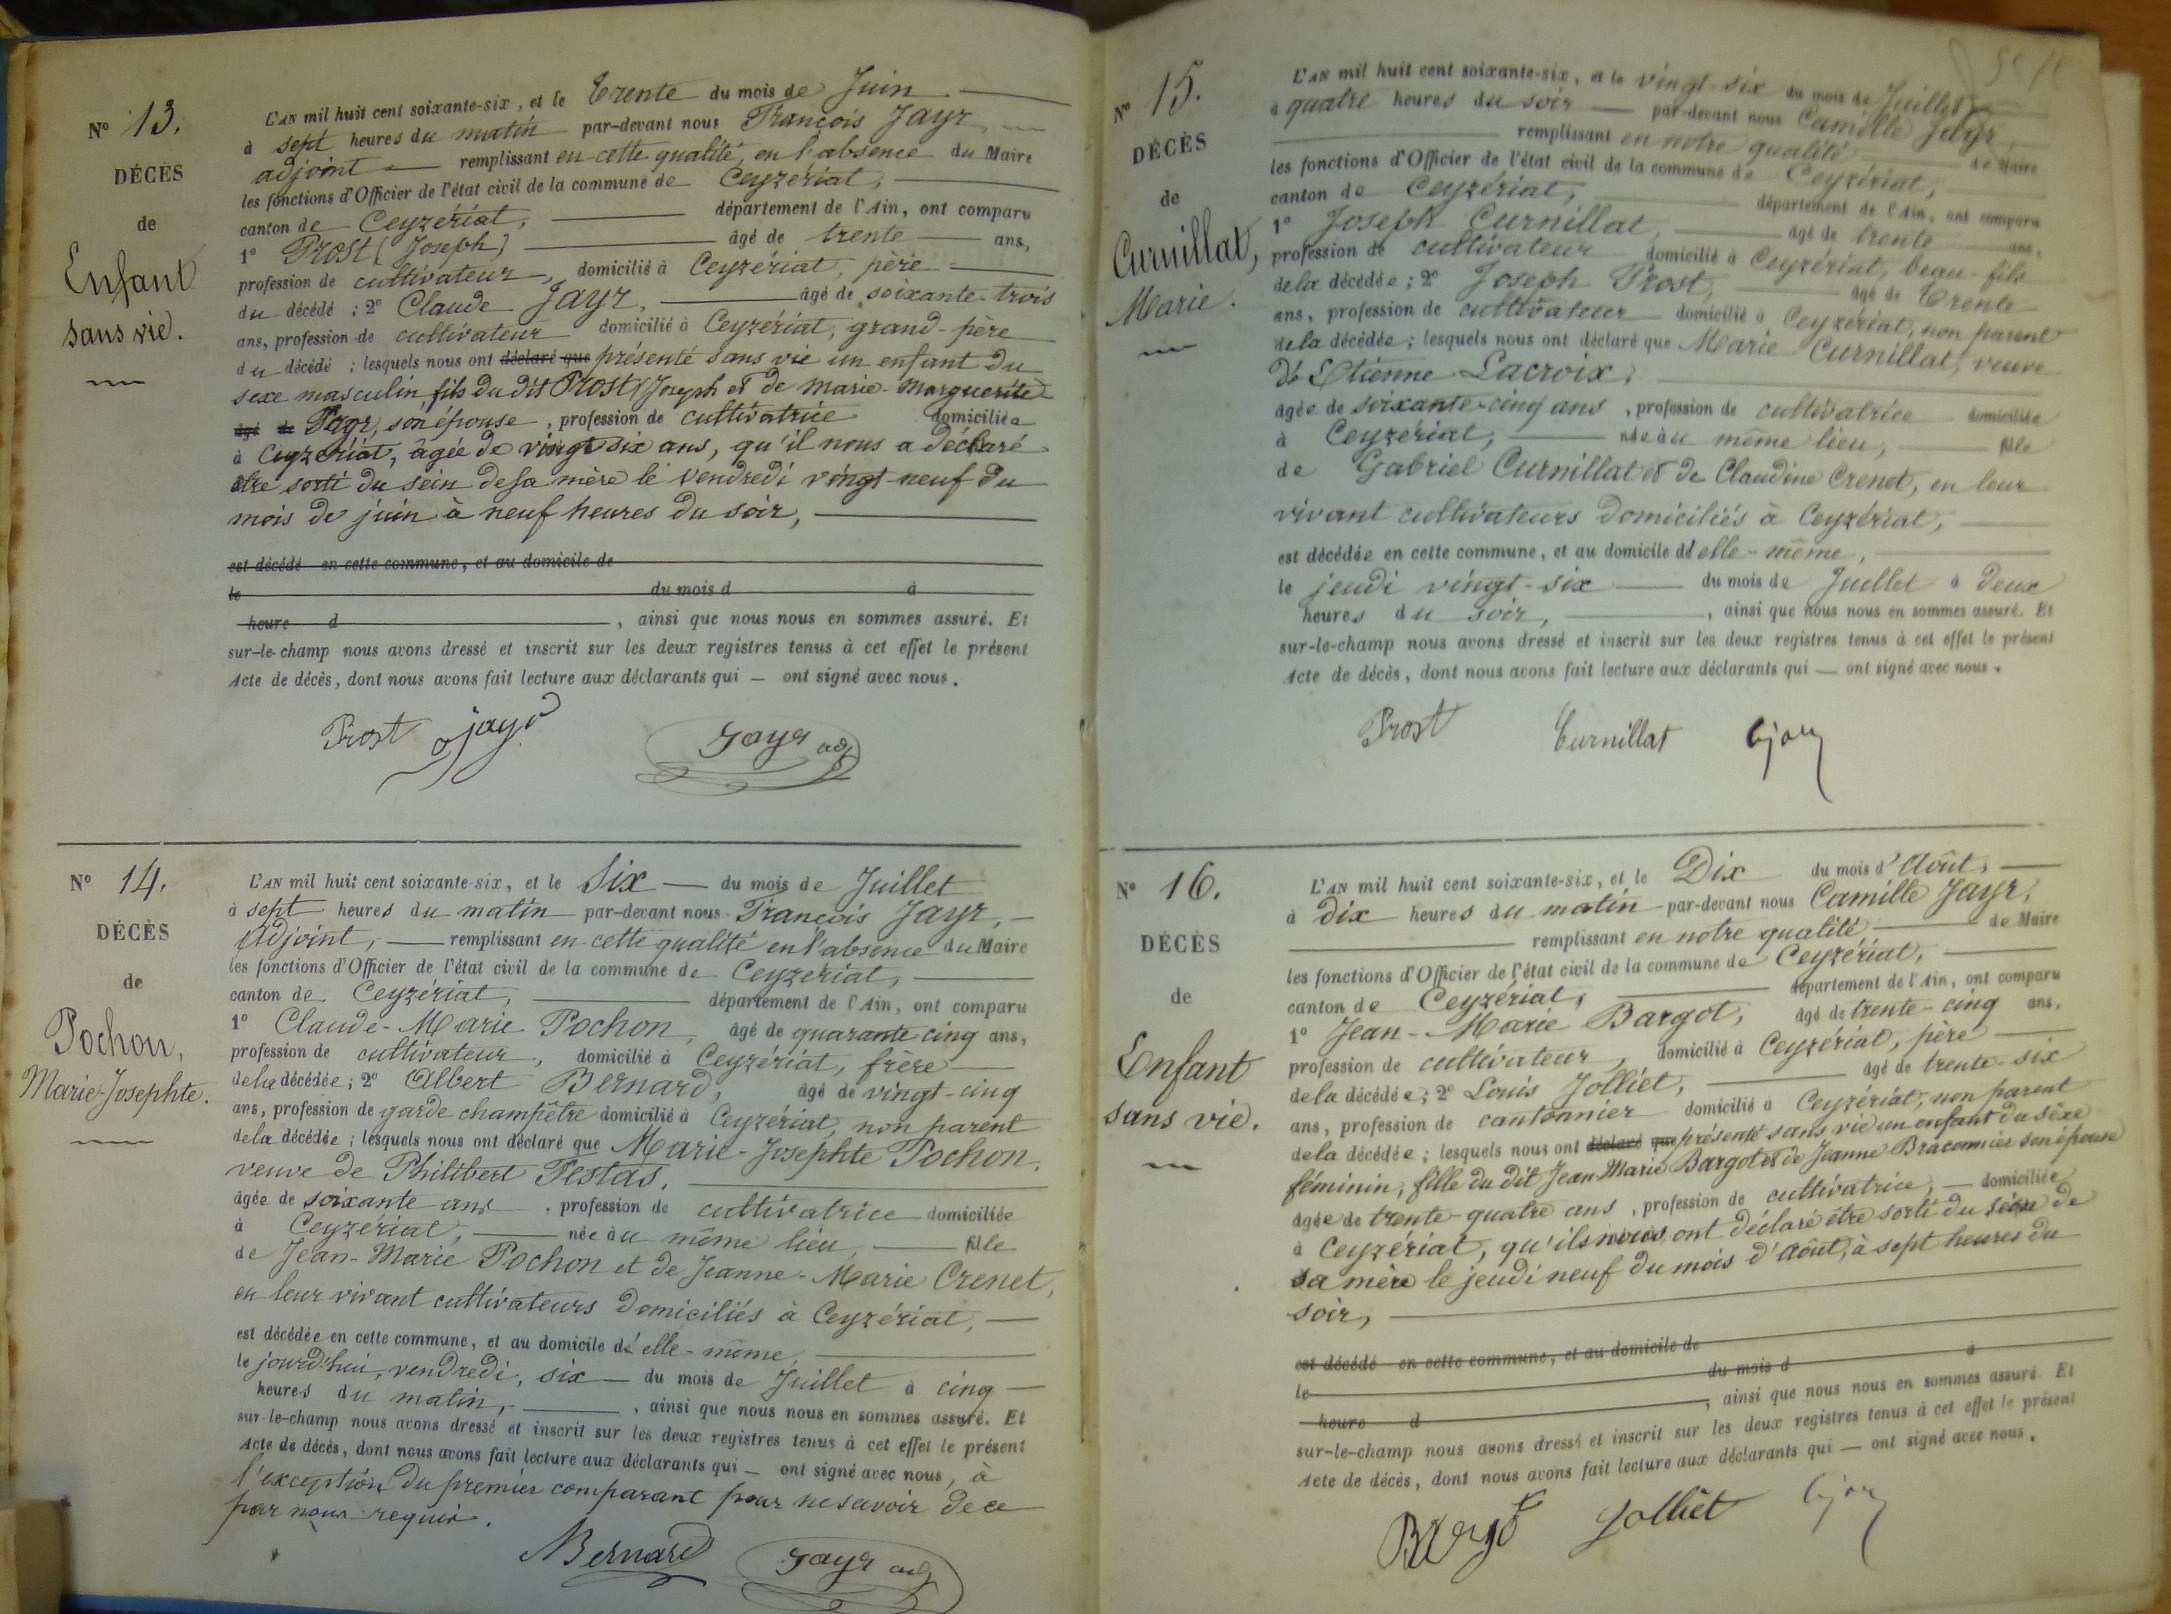 N° 13.
DÉCÈS
de
Enfant
sans vie.
L'AN mil huit cent soixante-six, et le Trente du mois de Juin
à sept heures du matin par-devant nous François Jayr,
adjoint remplissant en cette qualité, en l'absence du Maire
les fonctions d'Officier de l'état civil de la commune de Ceyzériat,
canton de Ceyzériat, département de l'Ain, ont comparu
1° Prost (Joseph) âgé de trente ans,
profession de cultivateur, domicilié à Ceyzériat, père
du décédé ; 2° Claude Jayr, âgé de soixante-trois
ans, profession de cultivateur domicilié à Ceyzériat, grand-père
du décédé ; lesquels nous ont déclaré que présenté sans vie un enfant du
sexe masculin fils du dit Prost (Joseph et de Marie-Marguerite
âgé de Jayr, son épouse, profession de cultivatrice domiciliée
à Ceyzériat, âgée de vingt six ans, qu'il nous a déclaré
être sorti du sein de sa mère le vendredi vingt-neuf du
mois de juin à neuf heures du soir,
est décédé en cette commune, et au domicile de
le du mois d à
heure d , ainsi que nous nous en sommes assuré. Et
sur-le-champ nous avons dressé et inscrit sur les deux registres tenus à cet effet le présent
Acte de décès, dont nous avons fait lecture aux déclarants qui — ont signé avec nous.
Prost jayr Jayr adj
N° 14.
DÉCÈS
de
Pochon,
Marie-Josephte.
L'AN mil huit cent soixante-six, et le Six du mois de Juillet
à sept heures du matin par-devant nous François Jayr,
Adjoint, remplissant en cette qualité en l'absence du Maire
les fonctions d'Officier de l'état civil de la commune de Ceyzériat,
canton de Ceyzériat, département de l'Ain, ont comparu
1° Claude-Marie Pochon, âgé de quarante cinq ans,
profession de cultivateur, domicilié à Ceyzériat, frère
de la décédée ; 2° Albert Bernard, âgé de vingt-cinq
ans, profession de garde champêtre domicilié à Ceyzériat, non parent
de la décédée ; lesquels nous ont déclaré que Marie-Josephte Pochon,
veuve de Philibert Festas,
âgée de soixante ans, profession de cultivatrice domiciliée
à Ceyzériat, née au même lieu, fille
de Jean-Marie Pochon et de Jeanne-Marie Crenet,
en leur vivant cultivateurs domiciliés à Ceyzériat,
est décédée en cette commune, et au domicile d'elle-même,
le jourd'hui, vendredi, six du mois de Juillet à cinq
heures du matin, , ainsi que nous nous en sommes assuré. Et
sur-le-champ nous avons dressé et inscrit sur les deux registres tenus à cet effet le présent
Acte de décès, dont nous avons fait lecture aux déclarants qui — ont signé avec nous, à
l'exception du premier comparant pour ne savoir de ce
par nous requis.
ABernard Jayr adj
N° 15.
DÉCÈS
de
Curnillat,
Marie.
L'AN mil huit cent soixante-six, et le vingt-six du mois de Juillet
à quatre heures du soir par-devant nous Camille Jayr,
remplissant en notre qualité de Maire
les fonctions d'Officier de l'état civil de la commune de Ceyzériat,
canton de Ceyzériat, département de l'Ain, ont comparu
1° Joseph Curnillat, âgé de trente ans,
profession de cultivateur domicilié à Ceyzériat, beau-fils
de la décédée ; 2° Joseph Prost, âgé de trente
ans, profession de cultivateur domicilié à Ceyzériat, non parent
de la décédée ; lesquels nous ont déclaré que Marie Curnillat, veuve
d'Etienne Lacroix,
âgée de soixante-cinq ans, profession de cultivatrice domiciliée
à Ceyzériat, née au même lieu, fille
de Gabriel Curnillat et de Claudine Crenet, en leur
vivant cultivateurs domiciliés à Ceyzériat,
est décédée en cette commune, et au domicile d'elle-même,
le jeudi vingt-six du mois de Juillet à deux
heures du soir, , ainsi que nous nous en sommes assuré. Et
sur-le-champ nous avons dressé et inscrit sur les deux registres tenus à cet effet le présent
Acte de décès, dont nous avons fait lecture aux déclarants qui — ont signé avec nous.
Prost Curnillat
N° 16.
DÉCÈS
de
Enfant
sans vie.
L'AN mil huit cent soixante-six, et le Dix du mois d'Août,
à dix heures du matin par-devant nous Camille Jayr,
remplissant en notre qualité de Maire
les fonctions d'Officier de l'état civil de la commune de Ceyzériat,
canton de Ceyzériat, département de l'Ain, ont comparu
1° Jean-Marie Bargot, âgé de trente-cinq ans,
profession de cultivateur, domicilié à Ceyzériat, père
de la décédée ; 2° Louis Jolliet, âgé de trente-six
ans, profession de cantonnier domicilié à Ceyzériat, non parent
de la décédée ; lesquels nous ont déclaré que présenté sans vie un enfant du sexe
féminin, fille du dit Jean-Marie Bargot et de Jeanne Braconnier son épouse
âgée de trente-quatre ans, profession de cultivatrice, domiciliée
à Ceyzériat, qu'ils nous ont déclaré être sorti du sein de
sa mère le jeudi neuf du mois d'Août, à sept heures du
soir,
est décédé en cette commune, et au domicile de
le du mois d à
heure d , ainsi que nous nous en sommes assuré. Et
sur-le-champ nous avons dressé et inscrit sur les deux registres tenus à cet effet le présent
Acte de décès, dont nous avons fait lecture aux déclarants qui — ont signé avec nous.
Jolliet